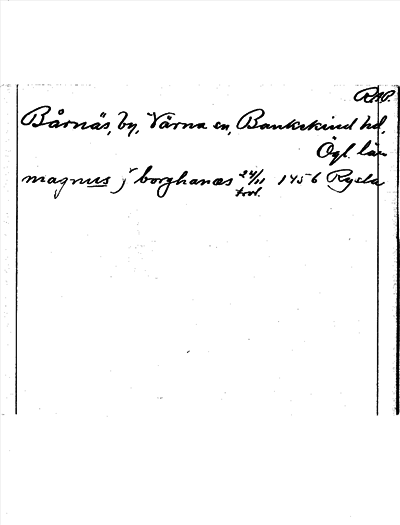 RAP.
Bårnäs, by, Värna sn, Bankekind hd,
Ögl. län
magnus j borghanæs 24/11 1456 Rysla
trol.